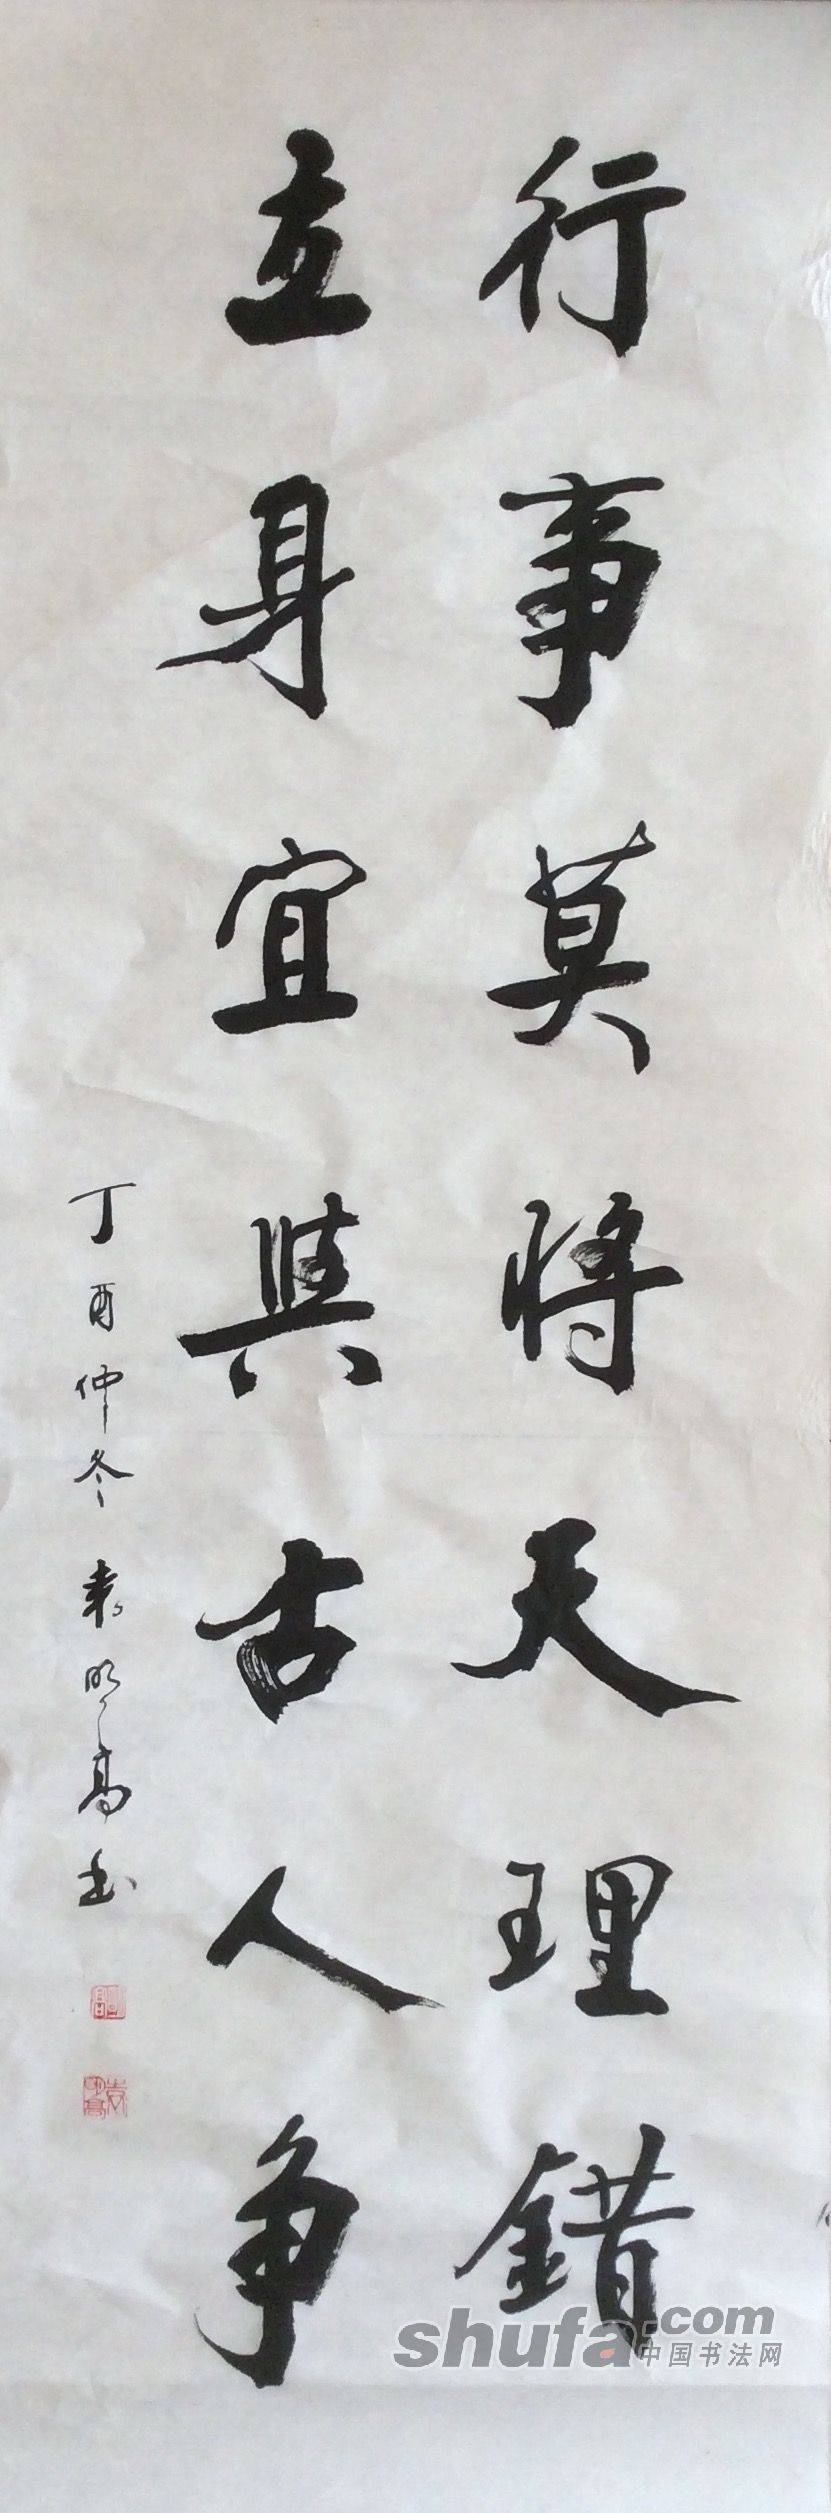 行事莫将天理錯
立身宜與古人争
丁酉仲冬 袁明高书
袁明高
shufa.com
中国书法网